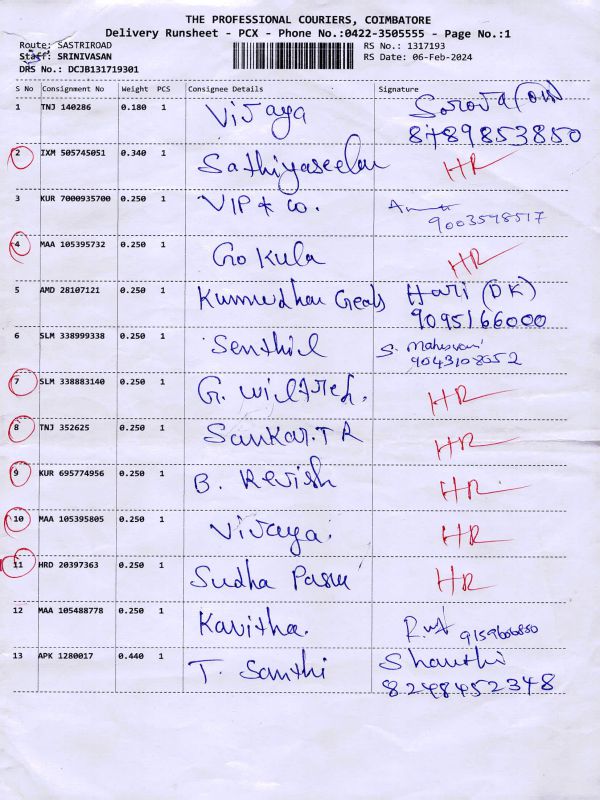 THE PROFESSIONAL COURIERS, COIMBATORE
Delivery Runsheet - PCX - Phone No.:0422-3505555 - Page No.:1
Route: SASTRIROAD RS No.: 1317193
Staff: SRINIVASAN RS Date: 06-Feb-2024
DRS No.: DCJB131719301
S No Consignment No Weight PCS Consignee Details Signature
1 TNJ 140286 0.180 1 Vijaya
8489853850
2 IXM 505745051 0.340 1 Sathiyaseelan HR
3 KUR 7000935700 0.250 1 VIP & Co.
9003548517
4 MAA 105395732 0.250 1 Gokula HR
5 AMD 28107121 0.250 1 Hari (DK)
9095166000
6 SLM 338999338 0.250 1 Senthil S. Maheswari
9043108052
7 SLM 338883140 0.250 1 G. Wilfred. HR
8 TNJ 352625 0.250 1 Sankar. T R HR
9 KUR 695774956 0.250 1 B. HR
10 MAA 105395805 0.250 1 Vijaya. HR
11 HRD 20397363 0.250 1 Sudha HR
12 MAA 105488778 0.250 1 Kavitha.
13 APK 1280017 0.440 1 T. Santhi Shanthi
8248452348